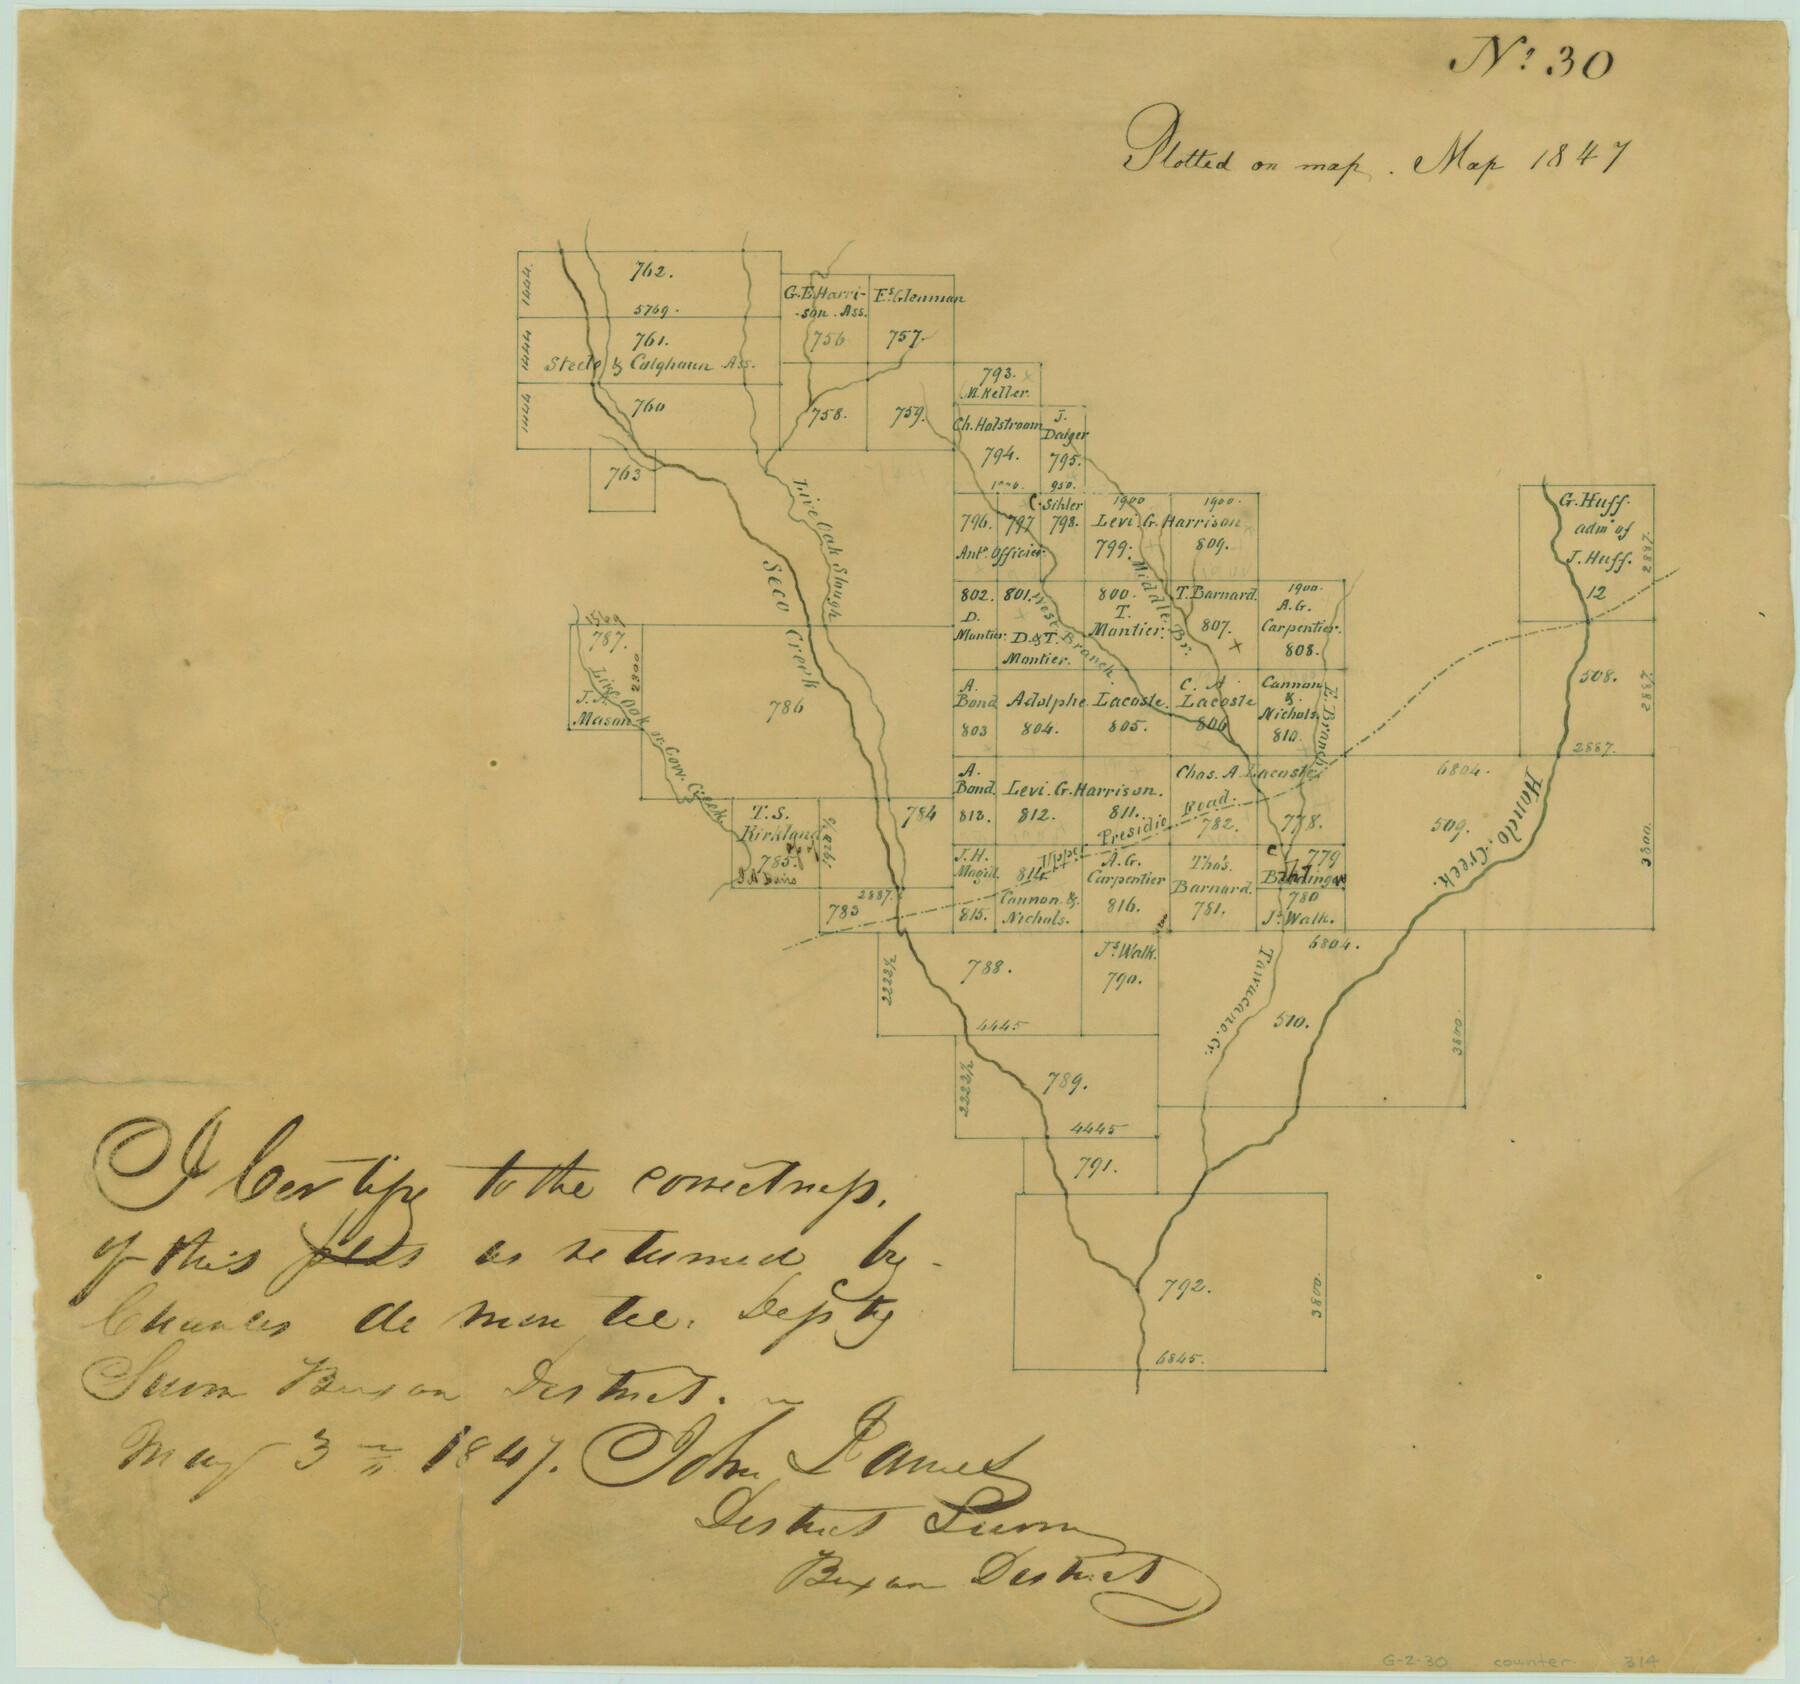 No. 30
Plotted on map. Map 1847
762.
1444.
5769.
761.
1444
Steele & Calghaun Ass.
760
1444
763
G. E. Harri-
-son. Ass.
756
Es. Glenman
757.
758.
759.
793.
M. Keller.
Ch. Holstroom
794.
J.
Daiger
795.
950.
Live Oak Slough
Seco Creek
796.
797
Ant. Officier.
C. Sihler
798.
1900
1900.
Levi. G. Harrison
799.
809.
802.
D.
Montier.
801.
D. & T.
Montier.
800.
T.
Montier.
T. Barnard.
807.
1900.
A. G.
Carpentier.
808.
West Branch.
Middle Br.
E. Branch
A.
Bond
803
Adolphe Lacoste.
804.
805.
C. A.
Lacoste
806
Cannon
&
Nichols.
810.
A.
Bond.
813.
Levi. G. Harrison.
812.
811.
Chas. A. Lacoste
782.
778.
Upper Presidio Road.
J. H.
Magill.
815.
814.
Cannon. &
Nichols.
A. G.
Carpentier
816.
Thos.
Barnard.
781.
779
780
Js. Walk.
G. Huff.
admr of
J. Huff.
12
2887.
508.
2887.
2887.
6804.
509.
3800.
Hondo. Creek.
1569
787.
2300
J. A.
Mason
Live Oak or Cow. Creek.
786
T. S.
Kirkland
785.
784
783
2887.
788.
4445
Js. Walk.
790.
6804.
510.
3800.
Tawucano. Cr.
789.
4445
791.
792.
3800.
6845.
I Certify to the correctness,
of this plat as returned by
Charles de Montel. Depty
Survr Bexar District.
May 3rd 1847. John James
District Survr
Bexar District
G-2-30 counter 314